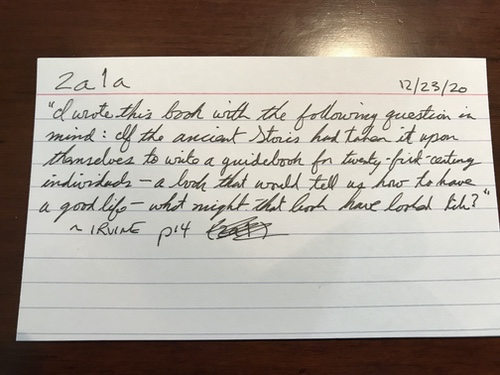 2a1a 12/23/20
"I wrote this book with the following question in
mind: If the ancient Stoics had taken it upon
themselves to write a guidebook for twenty-first-century
individuals — a book that would tell us how to have
a good life — what might that book have looked like?"
~ IRVINE p14